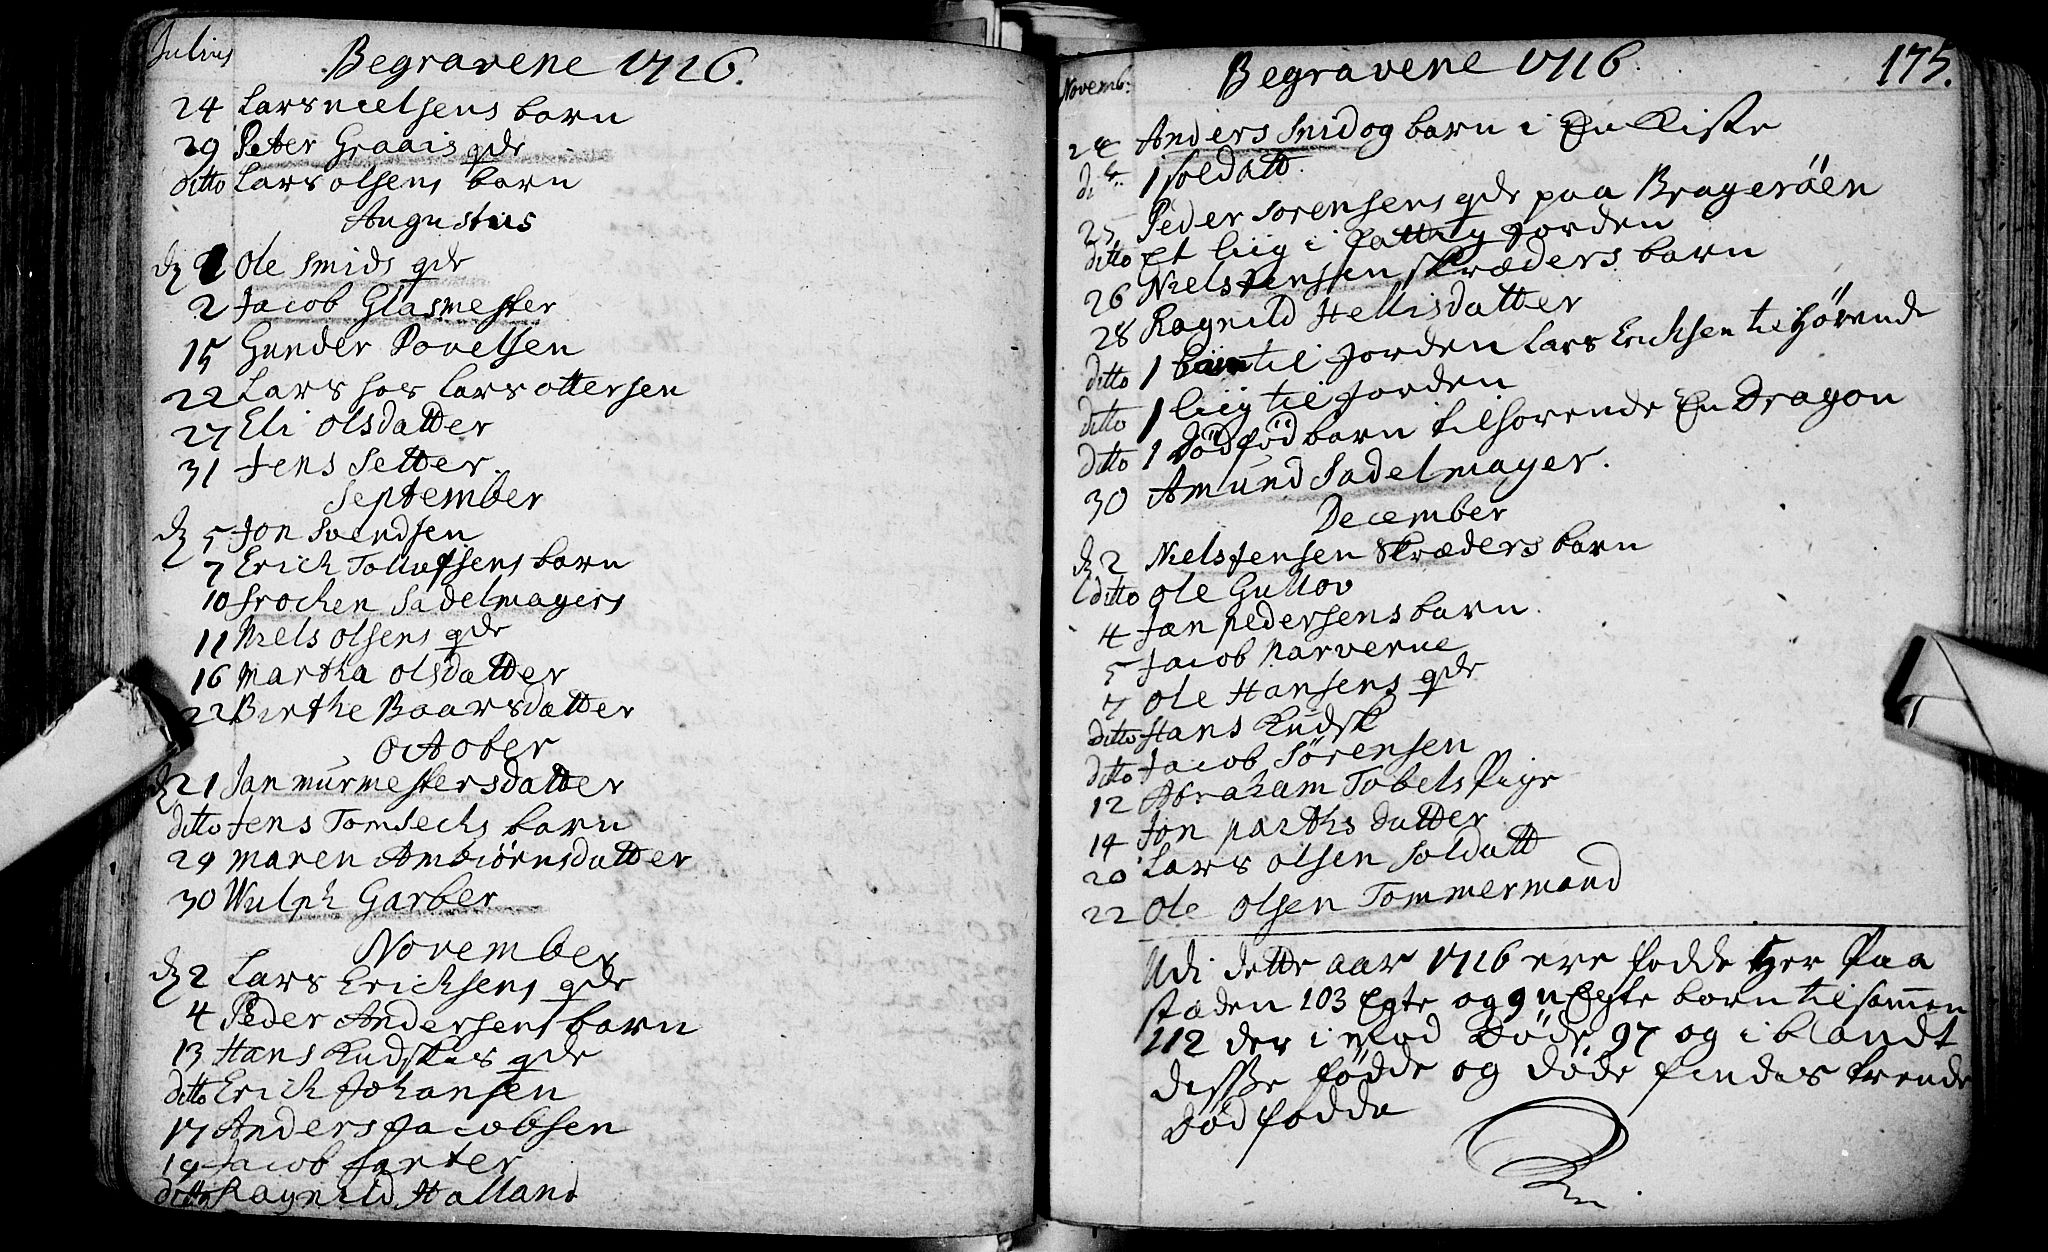 Julius
Begravene 1716.
24 Lars nielsens barn
29 Peter Graais qde
ditto Lars olsens barn
Augustus
d 2 Ole smids qde
2 Jacob Glasmester
15 Gunder Povelsen
22 Lars hos Lars ottersen
27 Eli olsdatter
31 Jens Setter
September
d 5 Jon Svendsen
7 Erich Tollofsens barn
10 frochen Sadelmagers
11 Niels olsens qde
16 Martha olsdatter
22 Birthe Baarsdatter
October
d 21 Jan murmestersdatter
ditto Jens Tomsechs barn
29 Maren Ambiörnsdatter
30 Wulph Garber
November
d 2 Lars Erichsens qde
4 Peder Andersens barn
13 Hans Kudskes qde
ditto Erich Johansen
17 Anders Jacobsen
19 Jacob
ditto Ragnild Halland
Novemb:
Begravene 1716.
175.
24 Anders Smid og barn i En Kiste
dito 1 soldatt.
25 Peder Sorensens qde paa Brageröen
ditto Et liig i fattig Jorden
26 Niels Jensen skræders barn
28 Ragnild Hellisdatter
ditto 1 barn til Jorden Lars Erichsen tilhörende
ditto 1 liig til Jorden
ditto 1 Dödföd barn tilhorende En Dragon
30 Amund Sadelmager.
December
d 2 Niels Jensen Skræders barn
ditto Ole Gullov
4 Jan pedersens barn
5 Jacob narverue
7 Ole Hansens qde
ditto Hans Kudsk
ditto Jacob Sörensen
12 Abraham Tobels Pige
14 Jon parths datter
20 Lars olsen Soldatt
22 Ole Olsen Tommermand
Udi dette aar 1716 ere fodde Her Paa
stæden 103 Egte og 9 uEgte born tilsamen
112 der i mod Döde 97 og i blandt
disse födde og döde findes trende
dödfodde